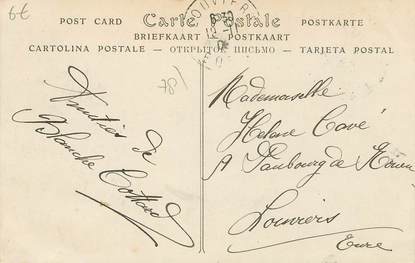 6€
POST CARD Carte Postale POSTKARTE
BRIEFKAART POSTKAART
CARTOLINA POSTALE — ОТКРЫТОЕ ПИСЬМО — TARJETA POSTAL
LOUVIERS
78/
Amitiés de
Blanche Cottard
Mademoiselle
Hélène Cavé
Faubourg de Rouen
Louviers
Eure